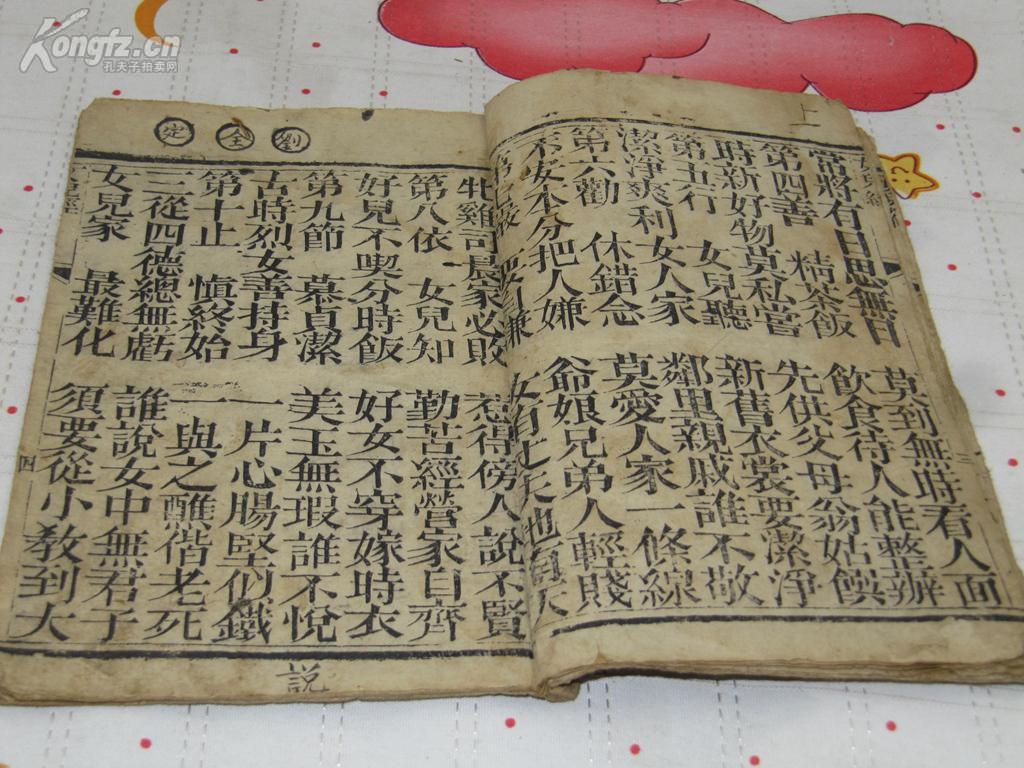 Kongfz.cn
孔夫子拍卖网
上
常將有日思無日 莫到無時看人面
第四善 精茶飯 飲食待人能整辦
時新好物莫私嘗 先供父母翁姑饌
第五行 女兒聽 新舊衣裳要潔淨
潔淨爽利女人家 鄰里親戚誰不敬
第六勸 休錯念 莫愛人家一條線
本分把人嫌 爺娘兄弟人輕賤
牝雞司晨家必敗 惹得傍人說不賢
第八依 女兒知 勤苦經營家自齊
好兒不喫分時飯 好女不穿嫁時衣
第九節 慕貞潔 美玉無瑕誰不悅
古時烈女善持身 一片心腸堅似鐵
第十止 慎終始 一與之醮偕老死
三從四德總無虧 誰說女中無君子
女兒家 最難化 須要從小教到大
劉全定
四
說